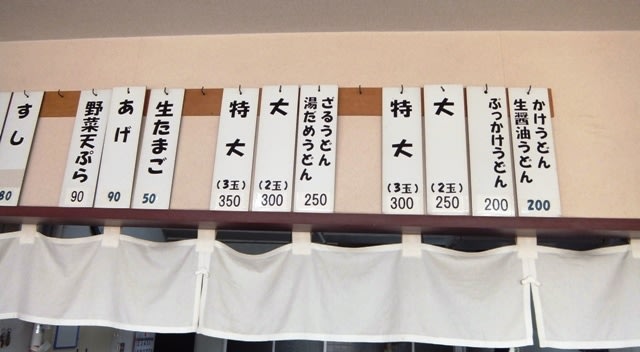 かけうどん
生醤油うどん
200
ぶっかけうどん
200
大
(2玉)
250
特大
(3玉)
300
ざるうどん
湯だめうどん
250
大
(2玉)
300
特大
(3玉)
350
生たまご
50
あげ
90
野菜天ぷら
90
すし
80